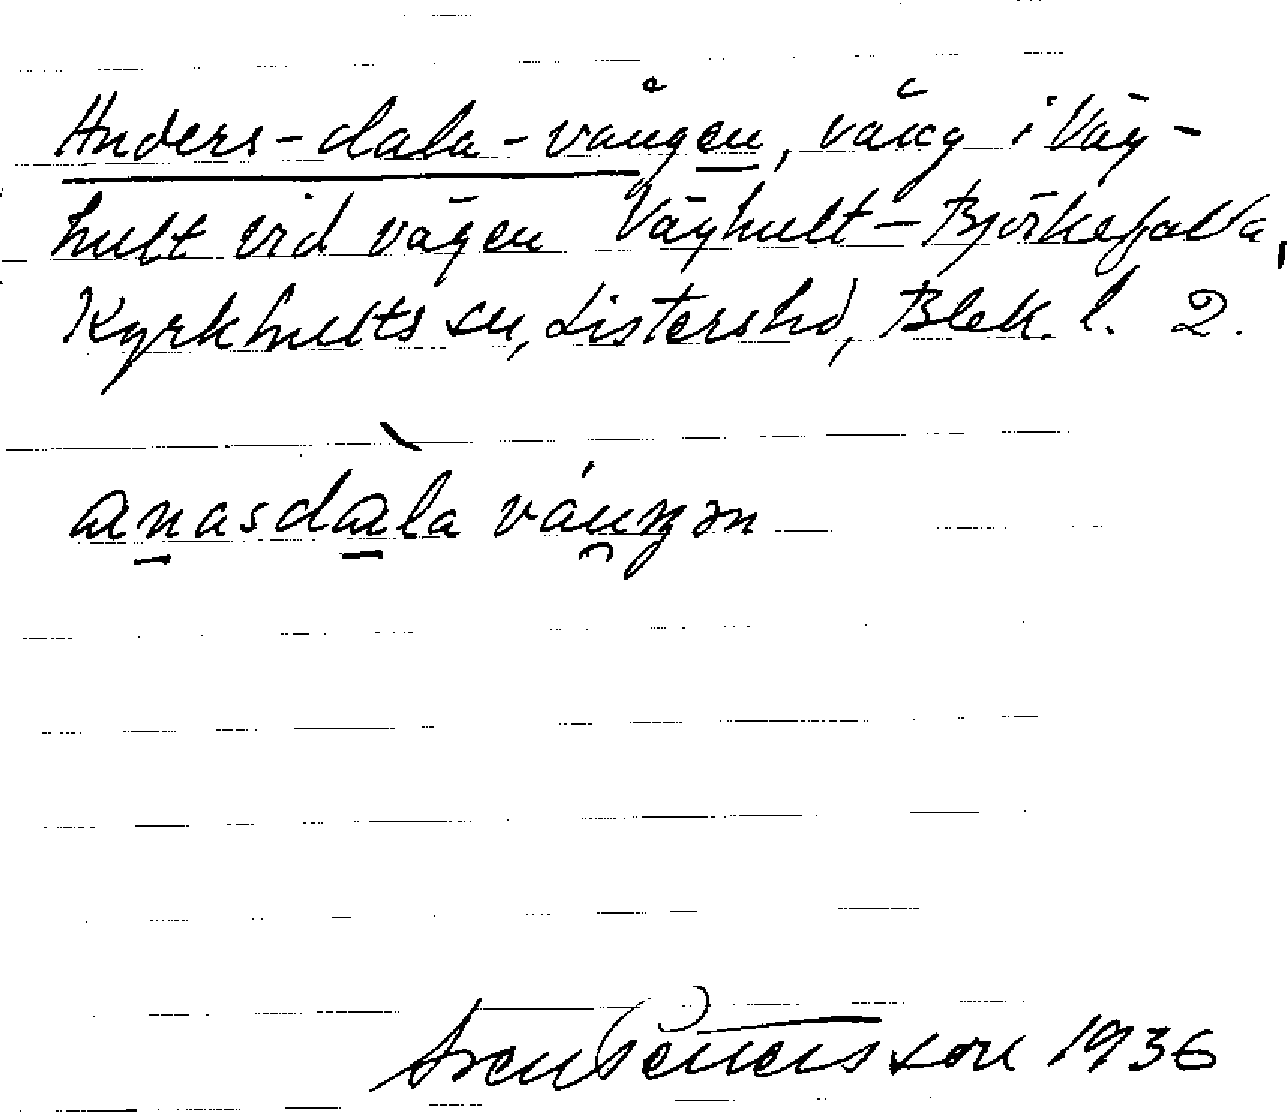 Anders-dala-vången, vång i Väg-
hult vid vägen Väghult-Björkefalla,
Kyrkhults sn, Listers hd, Blek. l. 2.
anasdàla váuŋən
Sven Benson 1936